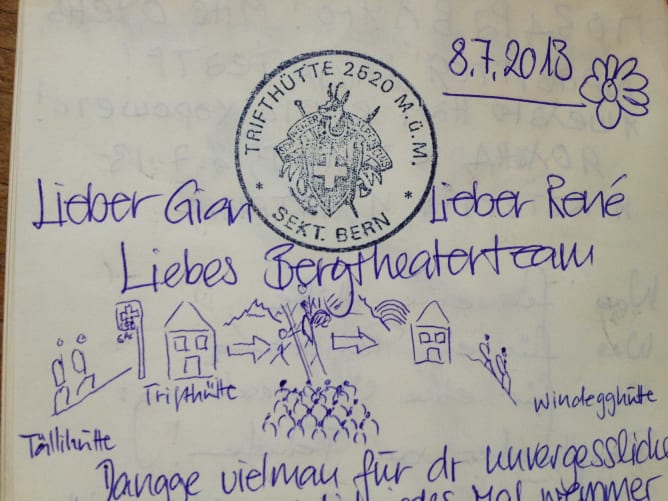 8.7.2013
TRIFTHÜTTE 2520 M.ü.M.
SEKT. BERN
Lieber Gian Lieber René
Liebes Bergtheaterteam
SAC
Trifthütte
Windegghütte
Tällihütte
Dangge vielmau für dr unvergessliche
jedes Mal